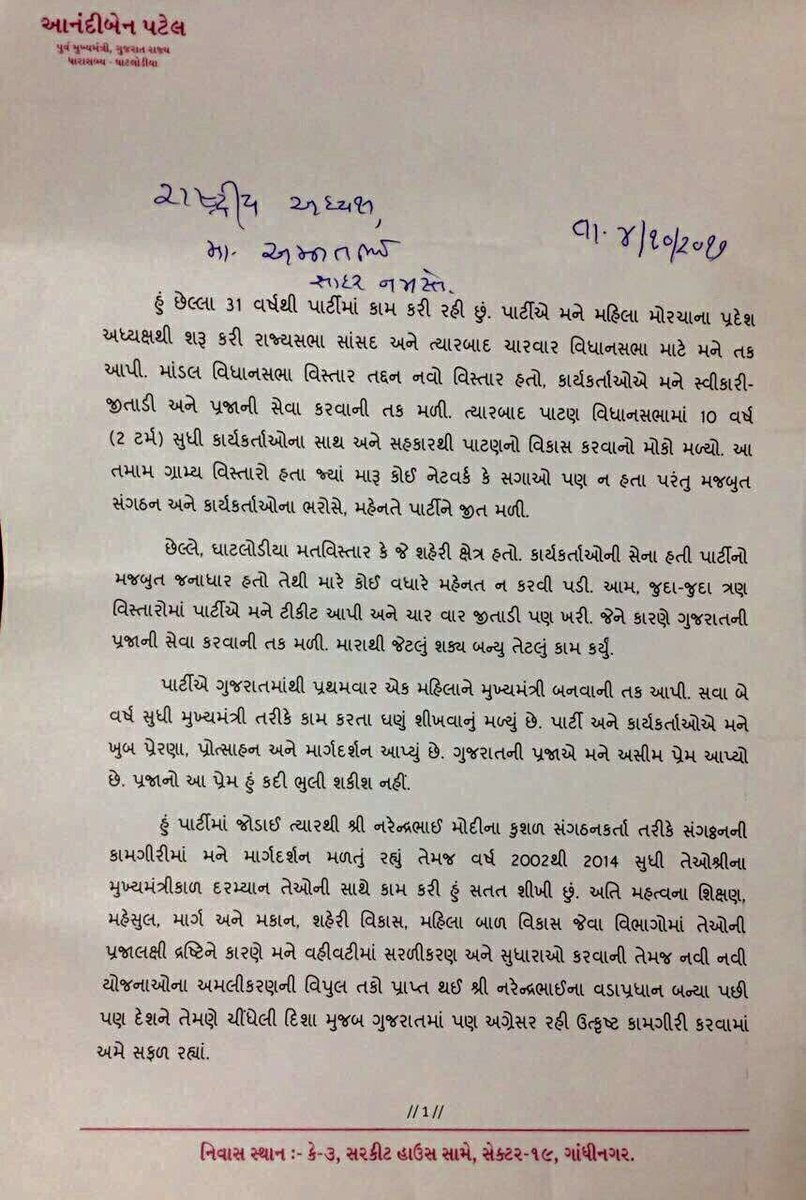 આનંદીબેન પટેલ
પુર્વ મુખ્યમંત્રી, ગુજરાત રાજ્ય
ધારાસભ્ય - ઘાટલોડીયા
રાષ્ટ્રીય અધ્યક્ષ,
તા. ૪/૧૦/૨૦૧૭
મા. અમીતભાઈ
સાદર નમસ્તે.
હું છેલ્લા 31 વર્ષથી પાર્ટીમાં કામ કરી રહી છું. પાર્ટીએ મને મહિલા મોરચાના પ્રદેશ
અધ્યક્ષથી શરૂ કરી રાજ્યસભા સાંસદ અને ત્યારબાદ ચારવાર વિધાનસભા માટે મને તક
આપી. માંડલ વિધાનસભા વિસ્તાર તદ્દન નવો વિસ્તાર હતો, કાર્યકર્તાઓએ મને સ્વીકારી-
જીતાડી અને પ્રજાની સેવા કરવાની તક મળી. ત્યારબાદ પાટણ વિધાનસભામાં 10 વર્ષ
(2 ટર્મ) સુધી કાર્યકર્તાઓના સાથ અને સહકારથી પાટણનો વિકાસ કરવાનો મોકો મળ્યો. આ
તમામ ગ્રામ્ય વિસ્તારો હતા જ્યાં મારૂ કોઈ નેટવર્ક કે સગાઓ પણ ન હતા પરંતુ મજબુત
સંગઠન અને કાર્યકર્તાઓના ભરોસે, મહેનતે પાર્ટીને જીત મળી.
છેલ્લે, ઘાટલોડીયા મતવિસ્તાર કે જે શહેરી ક્ષેત્ર હતો. કાર્યકર્તાઓની સેના હતી પાર્ટીનો
મજબુત જનાધાર હતો તેથી મારે કોઈ વધારે મહેનત ન કરવી પડી. આમ, જુદા-જુદા ત્રણ
વિસ્તારોમાં પાર્ટીએ મને ટીકીટ આપી અને ચાર વાર જીતાડી પણ ખરી. જેને કારણે ગુજરાતની
પ્રજાની સેવા કરવાની તક મળી. મારાથી જેટલું શક્ય બન્યુ તેટલું કામ કર્યું.
પાર્ટીએ ગુજરાતમાંથી પ્રથમવાર એક મહિલાને મુખ્યમંત્રી બનવાની તક આપી. સવા બે
વર્ષ સુધી મુખ્યમંત્રી તરીકે કામ કરતા ઘણું શીખવાનું મળ્યું છે. પાર્ટી અને કાર્યકર્તાઓએ મને
ખુબ પ્રેરણા, પ્રોત્સાહન અને માર્ગદર્શન આપ્યું છે. ગુજરાતની પ્રજાએ મને અસીમ પ્રેમ આપ્યો
છે. પ્રજાનો આ પ્રેમ હું કદી ભુલી શકીશ નહીં.
હું પાર્ટીમાં જોડાઈ ત્યારથી શ્રી નરેન્દ્રભાઈ મોદીના કુશળ સંગઠનકર્તા તરીકે સંગઠ્ઠનની
કામગીરીમાં મને માર્ગદર્શન મળતું રહ્યું તેમજ વર્ષ 2002થી 2014 સુધી તેઓશ્રીના
મુખ્યમંત્રીકાળ દરમ્યાન તેઓની સાથે કામ કરી હું સતત શીખી છું. અતિ મહત્વના શિક્ષણ,
મહેસુલ, માર્ગ અને મકાન, શહેરી વિકાસ, મહિલા બાળ વિકાસ જેવા વિભાગોમાં તેઓની
પ્રજાલક્ષી દ્રષ્ટિને કારણે મને વહીવટીમાં સરળીકરણ અને સુધારાઓ કરવાની તેમજ નવી નવી
યોજનાઓના અમલીકરણની વિપુલ તકો પ્રાપ્ત થઈ શ્રી નરેન્દ્રભાઈના વડાપ્રધાન બન્યા પછી
પણ દેશને તેમણે ચીંધેલી દિશા મુજબ ગુજરાતમાં પણ અગ્રેસર રહી ઉત્કૃષ્ટ કામગીરી કરવામાં
અમે સફળ રહ્યાં.
// 1 //
નિવાસ સ્થાન :- કે-૩, સરકીટ હાઉસ સામે, સેક્ટર-૧૯, ગાંધીનગર.